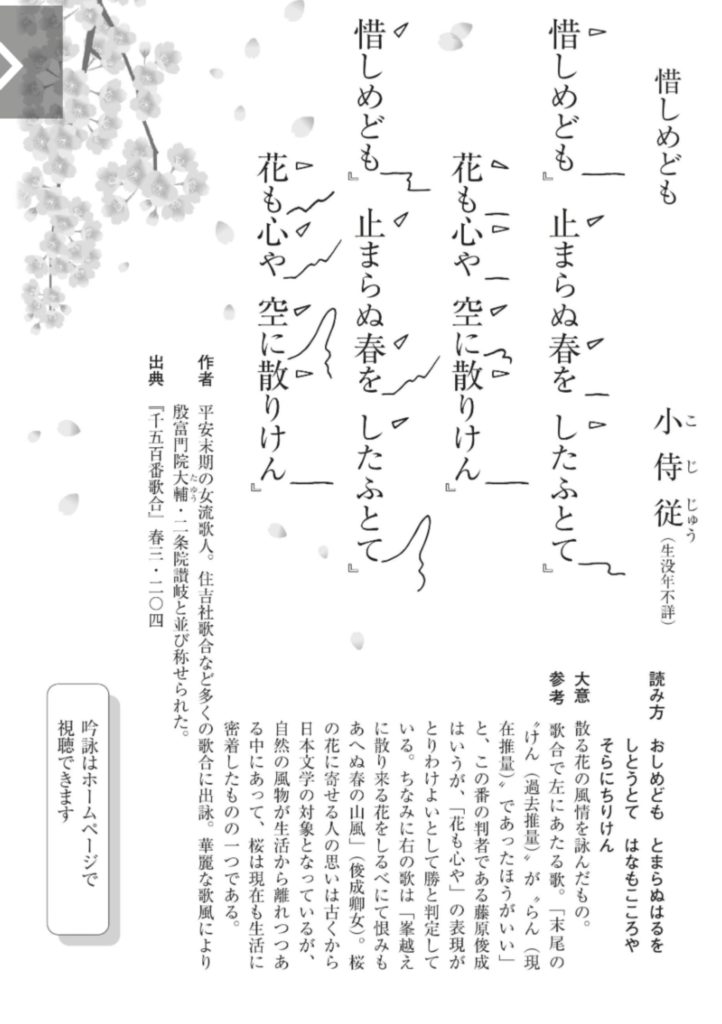 惜しめども
小侍従（生没年不詳）
こじじゅう
惜しめども』 止まらぬ春を したふとて』
花も心や 空に散りけん』
惜しめども』 止まらぬ春を したふとて』
花も心や 空に散りけん』
読み方 おしめども とまらぬはるを
しとうとて はなもこころや
そらにちりけん
大意 散る花の風情を詠んだもの。
参考 歌合で左にあたる歌。「末尾の
〝けん（過去推量）〟が〝らん（現
在推量）〟であったほうがいい」
と、この番の判者である藤原俊成
はいうが、「花も心や」の表現が
とりわけよいとして勝と判定して
いる。ちなみに右の歌は「峯越え
に散り来る花をしるべにて恨みも
あへぬ春の山風」（俊成卿女）。桜
の花に寄せる人の思いは古くから
日本文学の対象となっているが、
自然の風物が生活から離れつつあ
る中にあって、桜は現在も生活に
密着したものの一つである。
作者 平安末期の女流歌人。住吉社歌合など多くの歌合に出詠。華麗な歌風により
殷富門院大輔・二条院讃岐と並び称せられた。
たゆう
出典 『千五百番歌合』春三・二〇四
吟詠はホームページで
視聴できます